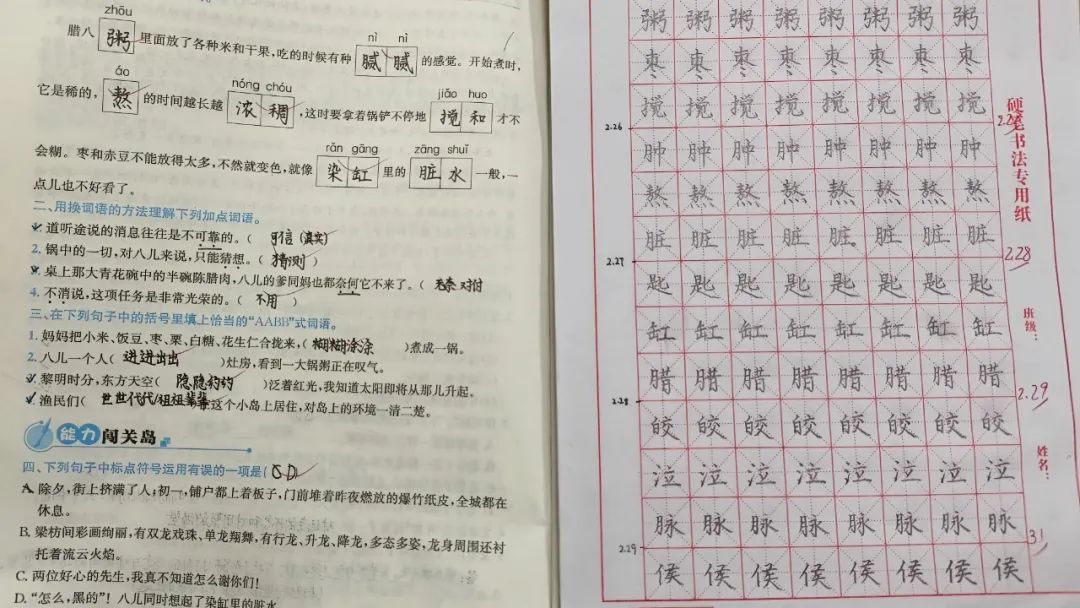 zhōu nì nì
腊八粥里面放了各种米和干果,吃的时候有种腻腻的感觉。开始煮时,
áo nóng chóu jiǎo huo
它是稀的,熬的时间越长越浓稠,这时要拿着锅铲不停地搅和才不
rǎn gāng zāng shuǐ
会糊。枣和赤豆不能放得太多,不然就变色,就像染缸里的脏水一般,一
点儿也不好看了。
二、用换词语的方法理解下列加点词语。
1. 道听途说的消息往往是不可靠的。( 可信(真实) )
2. 锅中的一切,对八儿来说,只能猜想。( 猜测 )
3. 桌上那大青花碗中的半碗陈腊肉,八儿的爹同妈也都奈何它不来了。( 对付 )
4. 不消说,这项任务是非常光荣的。( 不用 )
三、在下列句子中的括号里填上恰当的“AABB”式词语。
1. 妈妈把小米、饭豆、枣、栗、白糖、花生仁合拢来,( 糊糊涂涂 )煮成一锅。
2. 八儿一个人( 进进出出 )灶房,看到一大锅粥正在叹气。
3. 黎明时分,东方天空( 隐隐约约 )泛着红光,我知道太阳即将从那儿升起。
4. 渔民们( 世世代代/祖祖辈辈 )在这个小岛上居住,对岛上的环境一清二楚。
能力 闯关岛
四、下列句子中标点符号运用有误的一项是( D )
A. 除夕,街上挤满了人,初一,铺户都上着板子,门前堆着昨夜燃放的爆竹纸皮,全城都在
休息。
B. 梁枋间彩画绚丽,有双龙戏珠、单龙翔舞,有行龙、升龙、降龙,多态多姿,龙身周围还衬
托着流云火焰。
C. 两位好心的先生,我真不知道怎么谢你们!
D. “怎么,黑的”!八儿同时想起了染缸里的脏水
粥 粥 粥 粥 粥 粥 粥 粥
枣 枣 枣 枣 枣 枣 枣 枣
搅 搅 搅 搅 搅 搅 搅 搅
2.26
肿 肿 肿 肿 肿 肿 肿 肿
熬 熬 熬 熬 熬 熬 熬 熬
脏 脏 脏 脏 脏 脏 脏 脏
2.27
匙 匙 匙 匙 匙 匙 匙 匙
缸 缸 缸 缸 缸 缸 缸 缸
腊 腊 腊 腊 腊 腊 腊 腊
2.28
皎 皎 皎 皎 皎 皎 皎 皎
泣 泣 泣 泣 泣 泣 泣 泣
脉 脉 脉 脉 脉 脉 脉 脉
2.29
侯 侯 侯 侯 侯 侯 侯 侯
硬笔书法专用纸
2.28
班级:
2.29
姓名: